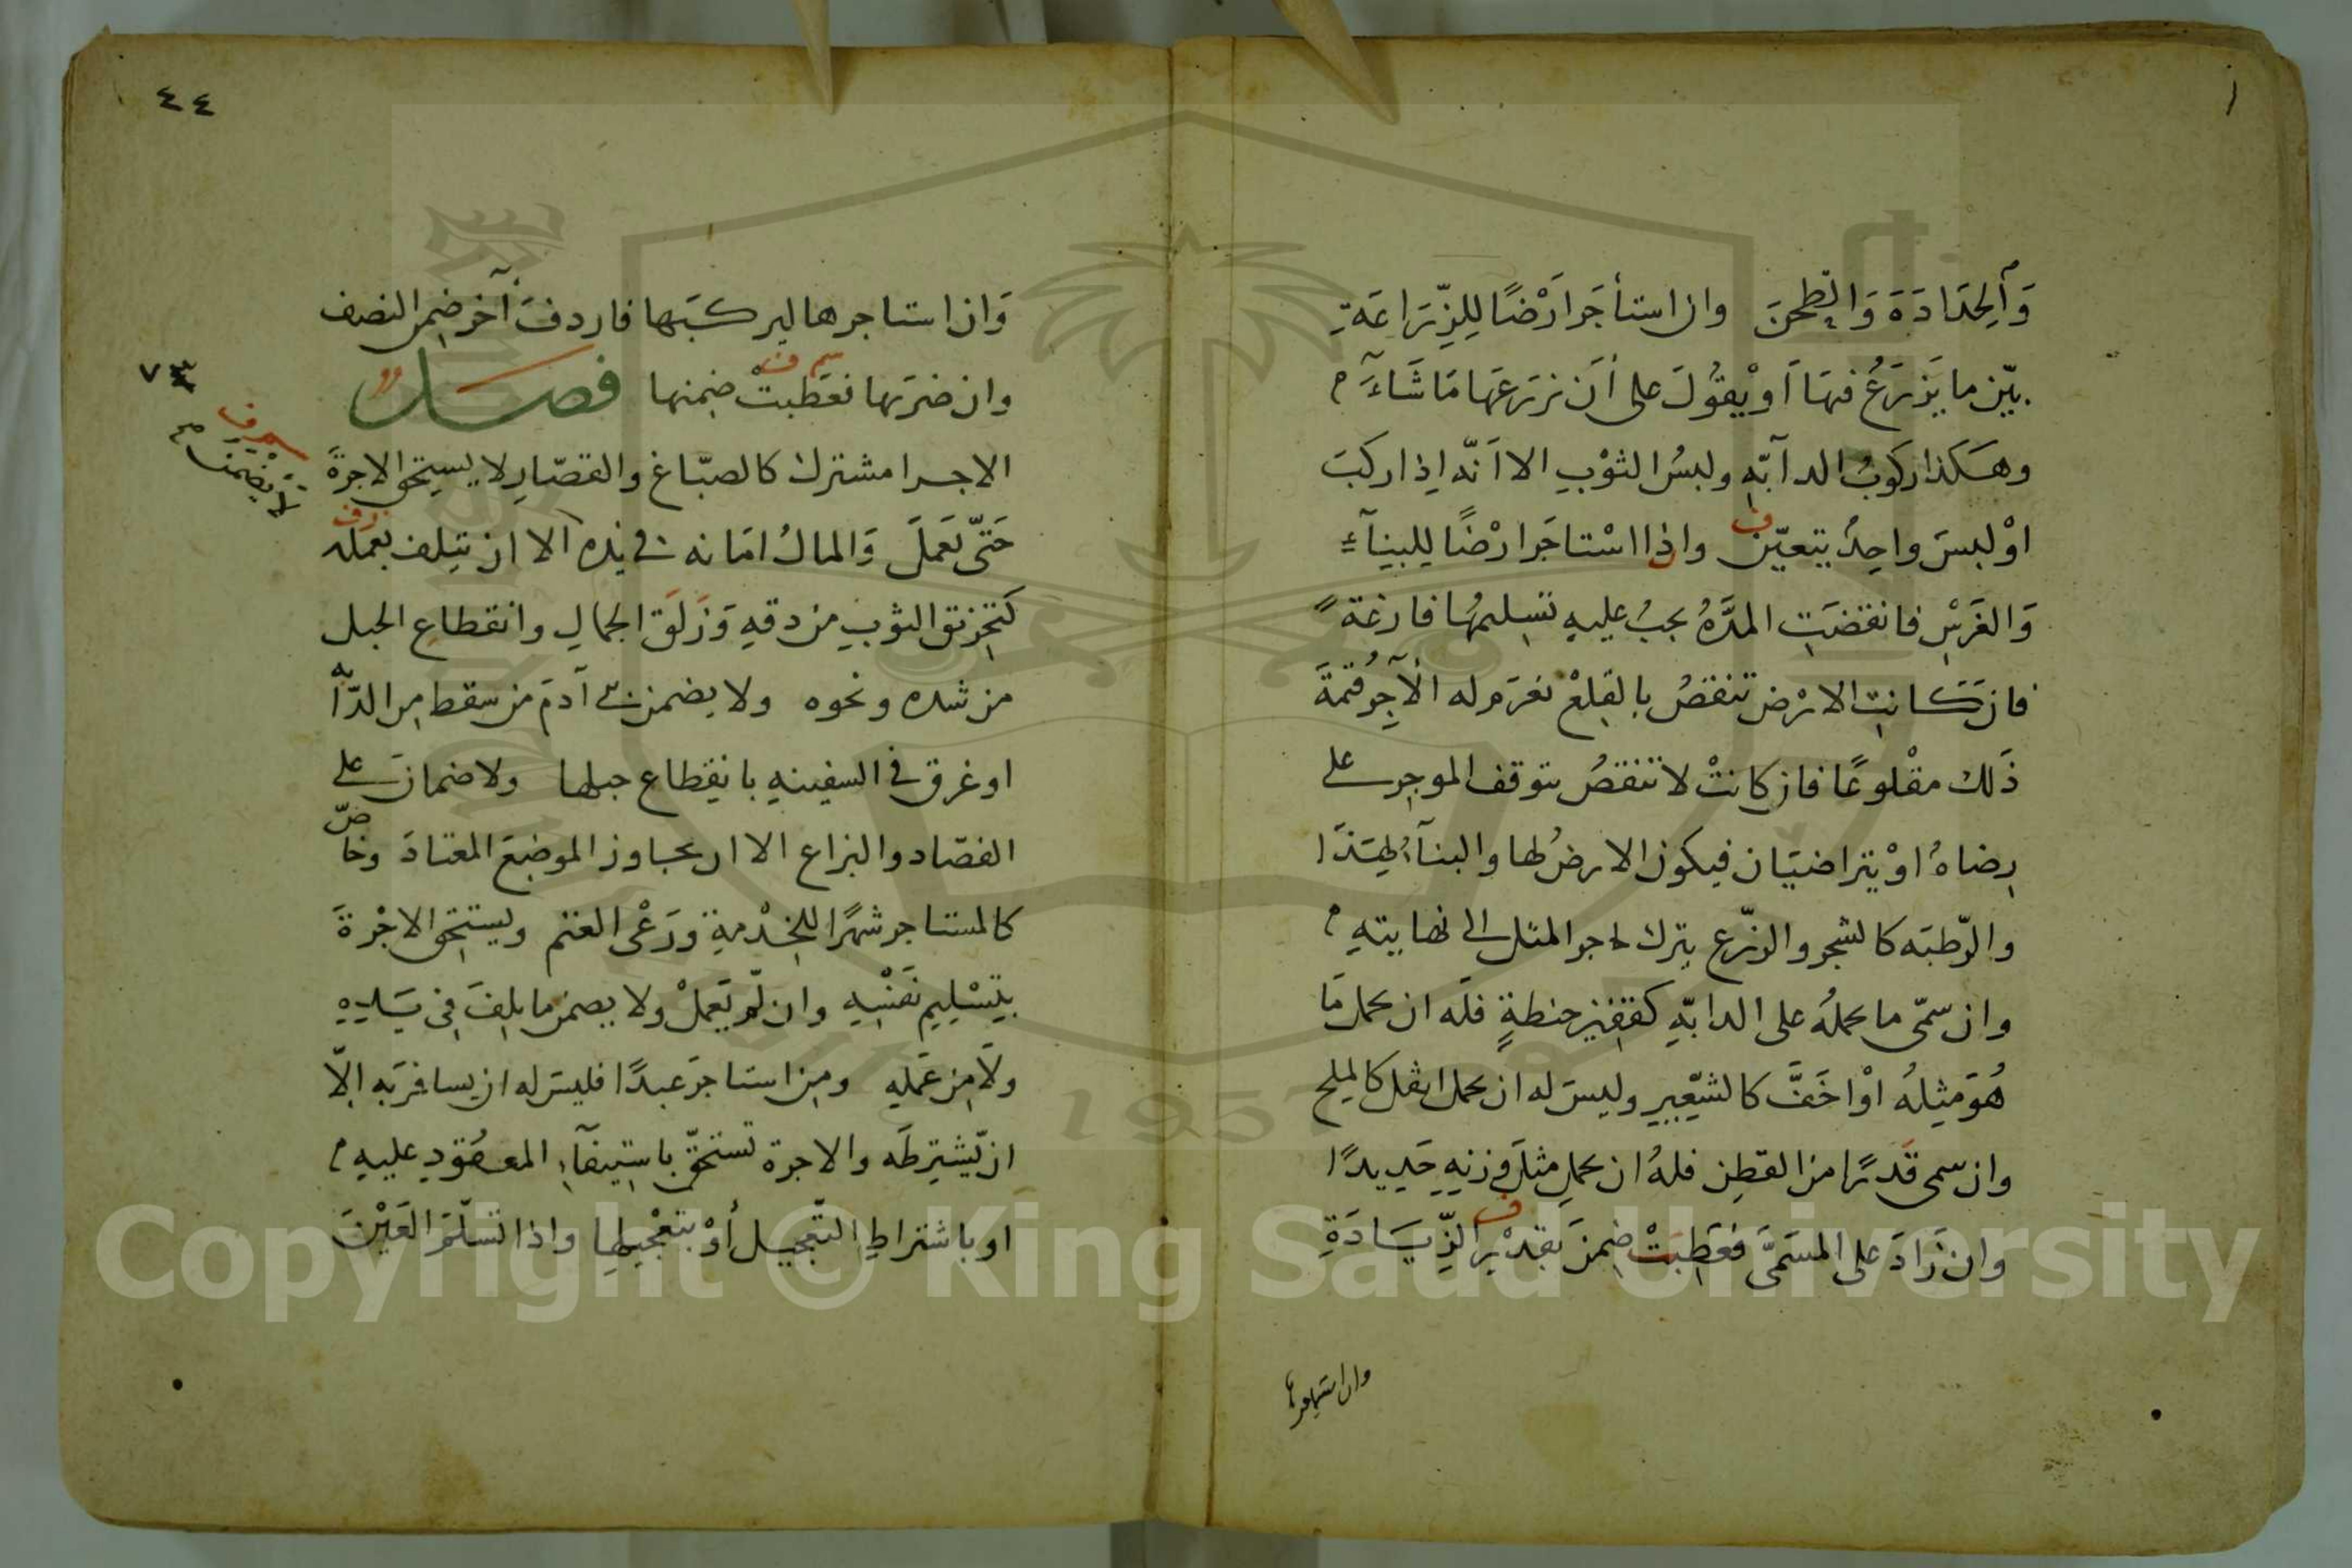 وَالحِدَادَةَ وَالطحنَ وان استأجَرَ ارَضًا لِلزِّرَاعَةِ
بيّن ما يَزرَعُ فيهَا اَوْ يقُولَ على أَن نزرَعَهَا مَا شَاءَ
وهكذا ركوبُ الدابّهِ ولبسُ الثوْبِ الا انّه اِذا ركبَ
اوْ لبسَ واحِدٌ يتعيّن واذا اسْتاجَرَ ارْضًا للبِناءِ
وَالغَرَسِ فانقضَتِ المدَّهُ يجبُ عليهِ تسليمُها فارغةً
فان كانتِ الارْض تنقصُ بالقلعْ نغرَم له الآجِرُ قيمَةَ
ذَلك مقلُوعًا فان كانتْ لا تنقصُ يتوقف الموجر على
رضاهُ اوْ يتراضيَان فيكون الارضُ لها والبناءُ لهِذَا
والرّطبَه كالشجر والزّرع يترك باجر المثل الى نهايتهِ
وان سمّى ما يحملُه على الدابّهِ كقفيز حنطةٍ فلَه ان يحمل مَا
هُوَ مِثلهُ اوْ اخَفَّ كالشعِيرِ وليسَ له ان يحمل اثقل كالملح
وان سمى قَدرًا من القطِن فلهُ ان يحملِ مثلَ وزنِهِ حَدِيدًا
وان زَادَ على المسَمىَّ فعَطِبَتْ ضِمنَ بقدْر الزِّيَادَةِ
وان استاجرها
٤٤
وَان استاجرها ليركبَها فاردفَ آخر ضمن النصف
وان ضرَبها فعَطبتْ ضمنها فصل
سم ف
٧٣
الاجرا مشترك كالصبّاغ والقصّارِ لا يستحق الاجرةَ
لا يضمن
حَتّى يَعمَلَ وَالمالُ امَانه في يده الا ان يتلف بعمَله
كتَخرِيق الثوبِ من دقهِ وَزَلَق الجمالِ وانقطاعِ الحبل
من شده ونحوه ولا يضمن بنى آدمَ من سقط مِن الدّابه
او غرق فى السفينهِ بانقِطاع حبلها ولا ضمانَ على
الفصّاد والبزاغ الا ان يجاوز الموضِعَ المعتادَ وخاصّ
كالمستاجر شهرًا للخِدْمةِ ورَعْى الغنم ويستحِق الاجْرةَ
بتِسْليِم نفَسْهِ وان لَم يَعملْ ولا يضمن ما تلِفَ فِى يَدِهِ
ولَا مِن عَملهِ ومِن استاجرَ عبدًا فليسَ له ان يسافرَ به اِلّا
ان يّشتِرطَه والاجرة تستحقّ باستِيفآءِ المعقودِ عليهِ
او باشتراطِ التّعجيل أَوْ بتعْجيلِها واذا تَسلّم العَيْنَ
Copyright © King Saud University
1957